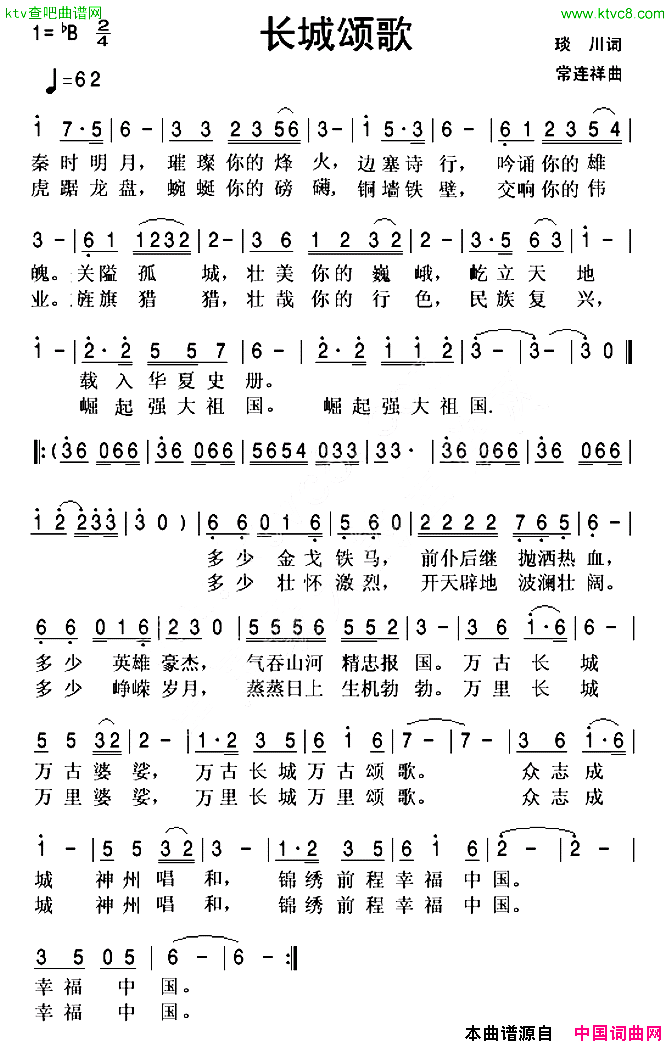 ktv查吧曲谱网
www.ktvc8.com
1=♭B 2/4
长城颂歌
琰 川词
♩=62
常连祥曲
i 7·5|6-|3 3 2 3 56|3-|i 5·3|6-|6 1 2 3 5 4|
秦时明月，璀璨你的烽火，边塞诗行，吟诵你的雄
虎踞龙盘，蜿蜒你的磅礴，铜墙铁壁，交响你的伟
3-|6 1 1232|2-|3 6 1 2 32|2-|3·5 6 3|1-|
魄。关隘孤城，壮美你的巍峨，屹立天地
业。旌旗猎猎，壮哉你的行色，民族复兴，
1-|2·2 5 5 7|6-|2·2 i i 2|3-|3-|3 0‖
载入华夏史册。
崛起强大祖国。 崛起强大祖国.
‖:(36 066|36 066|5654 033|33·|36 066|36 066|
i 2 233|3 0)|6 6 0 1 6|5 6 0|2 2 2 2 7 6 5|6-|
多少 金戈铁马，前仆后继 抛洒热血，
多少 壮怀激烈，开天辟地 波澜壮阔。
6 6 0 1 6|2 3 0|5 5 5 5 5 5 6|5 5 2|3-|3 6 i·6|
多少 英雄豪杰，气吞山河 精忠报国。万古长城
多少 峥嵘岁月，蒸蒸日上 生机勃勃。万里长城
5 5 32|2-|1·2 3 5|6 i 6|7-|7-|3 6 i·6|
万古婆娑，万古长城万古颂歌。 众志成
万里婆娑，万里长城万里颂歌。 众志成
i-|5 5 32|2-|1·2 3 5|6 i 6|2-|2-|
城 神州唱和，锦绣前程幸福中国。
城 神州唱和，锦绣前程幸福中国。
3 5 0 5|6-|6-:‖
幸福 中国。
幸福 中国。
本曲谱源自 中国词曲网